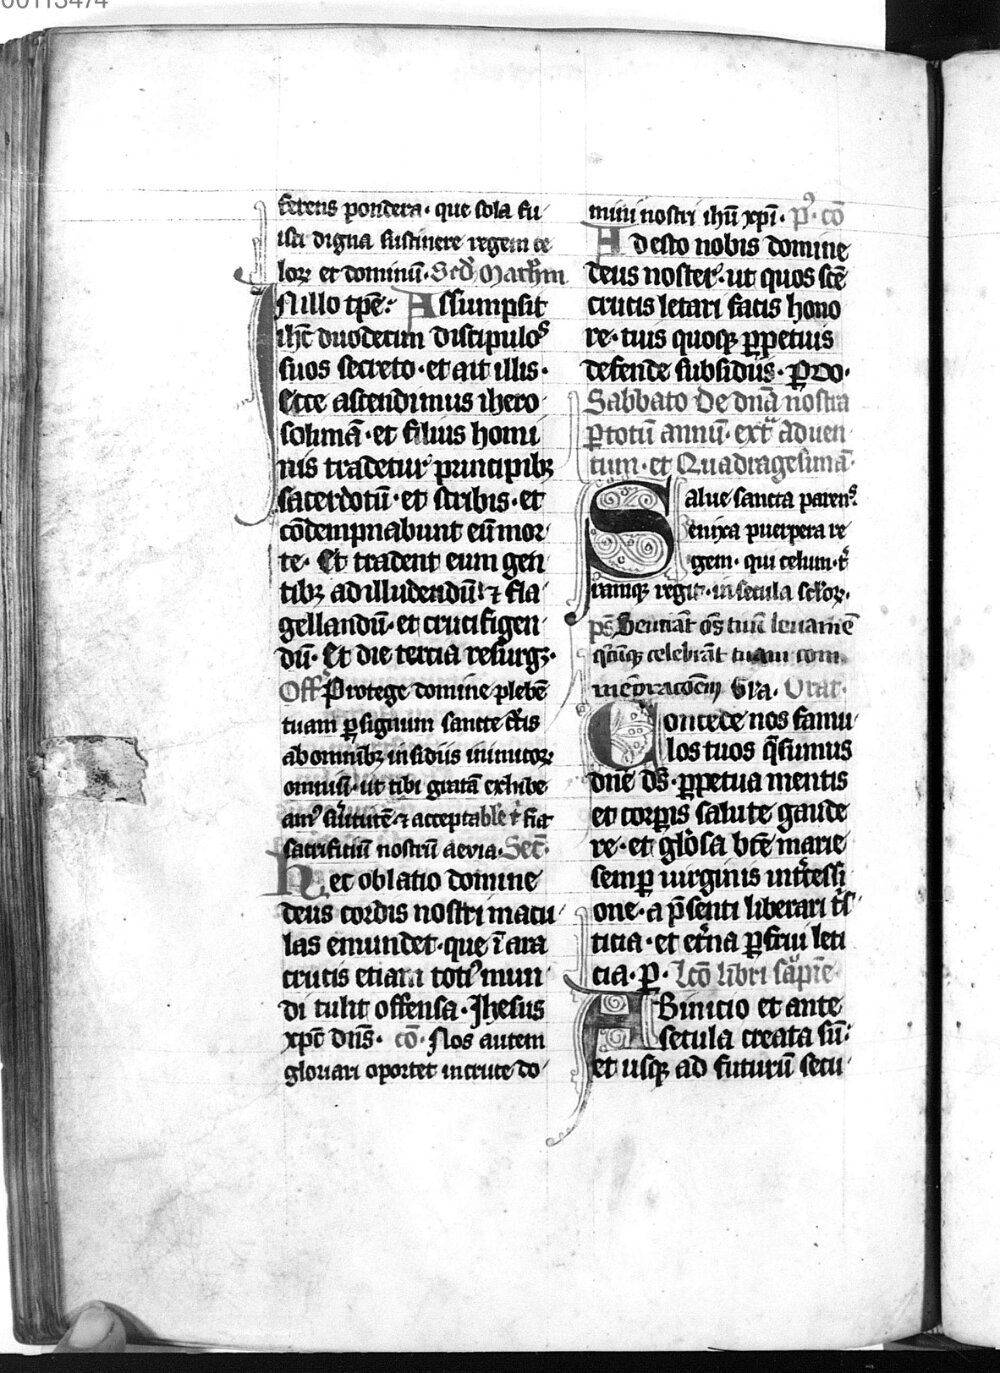 00113474
ferens pondera· que sola fu
isti digna sustinere regem ce
loꝝ et dominū· Scd̄ Mathm
In illo tp̄e· Assumpsit
ihc̄ duodecim discipulos
suos secreto· et ait illis·
Ecce ascendimus ihero
solimā· et filius homi
nis tradetur principibꝫ
sacerdotū· et scribis· et
cōdempnabunt eū mor
te· Et tradent eum gen
tibꝫ ad illudendū ⁊ fla
gellandū· et crucifigen
dū· Et die tercia resurgꝫ·
Off̄ Protege domine plebē
tuam ꝑ signum sancte cͥcis
ab omnibꝫ insidiis inimicoꝝ
omniū· ut tibi gͣtā exhibe
amꝰ ẜuitutē· ⁊ acceptabͥle fiat
sacrificiū nostrū aevia· Sec̄·
Hec oblatio domine
deus cordis nostri macu
las emundet· que ī ara
crucis etiam totiꝰ mun
di tulit offensa· Jhesus
xp̄c dn̄s· cō· Nos autem
gloriari oportet in cruce do
mini nostri ihū xp̄i· p̄ꝰ cō
Adesto nobis domine
deus noster· ut quos sc̄e
crucis letari facis hono
re· tuis quoqꝫ ꝑpetuis
defende subsidiis· ꝑ do·
Sabbato de dn̄a nostra
ꝑ totū annū· extͣ aduen
tum· et Quadragesimā·
Salue sancta parens
enixa puerpera re
gem· qui celum· t̄
ramqꝫ regit· in secula sc̄loꝝ·
ps̄ Senciāt om̄s tuū leuamē
q̄cūqꝫ celebrāt tuam com
mēoracōem Gͥa· Orat·
Concede nos famu
los tuos q̄sumus
dn̄e ds̄· ꝑpetua mentis
et corꝑis salute gaude
re· et glōsa bt̄e marie
semꝑ uirginis int̄cessi
one· a p̄senti liberari t̄s
ticia· et et̄na ꝑfrui leti
cia· ꝑ· Lcō libri sap̄ie·
Ab inicio et ante
secula creata sū·
et usqꝫ ad futurū secu